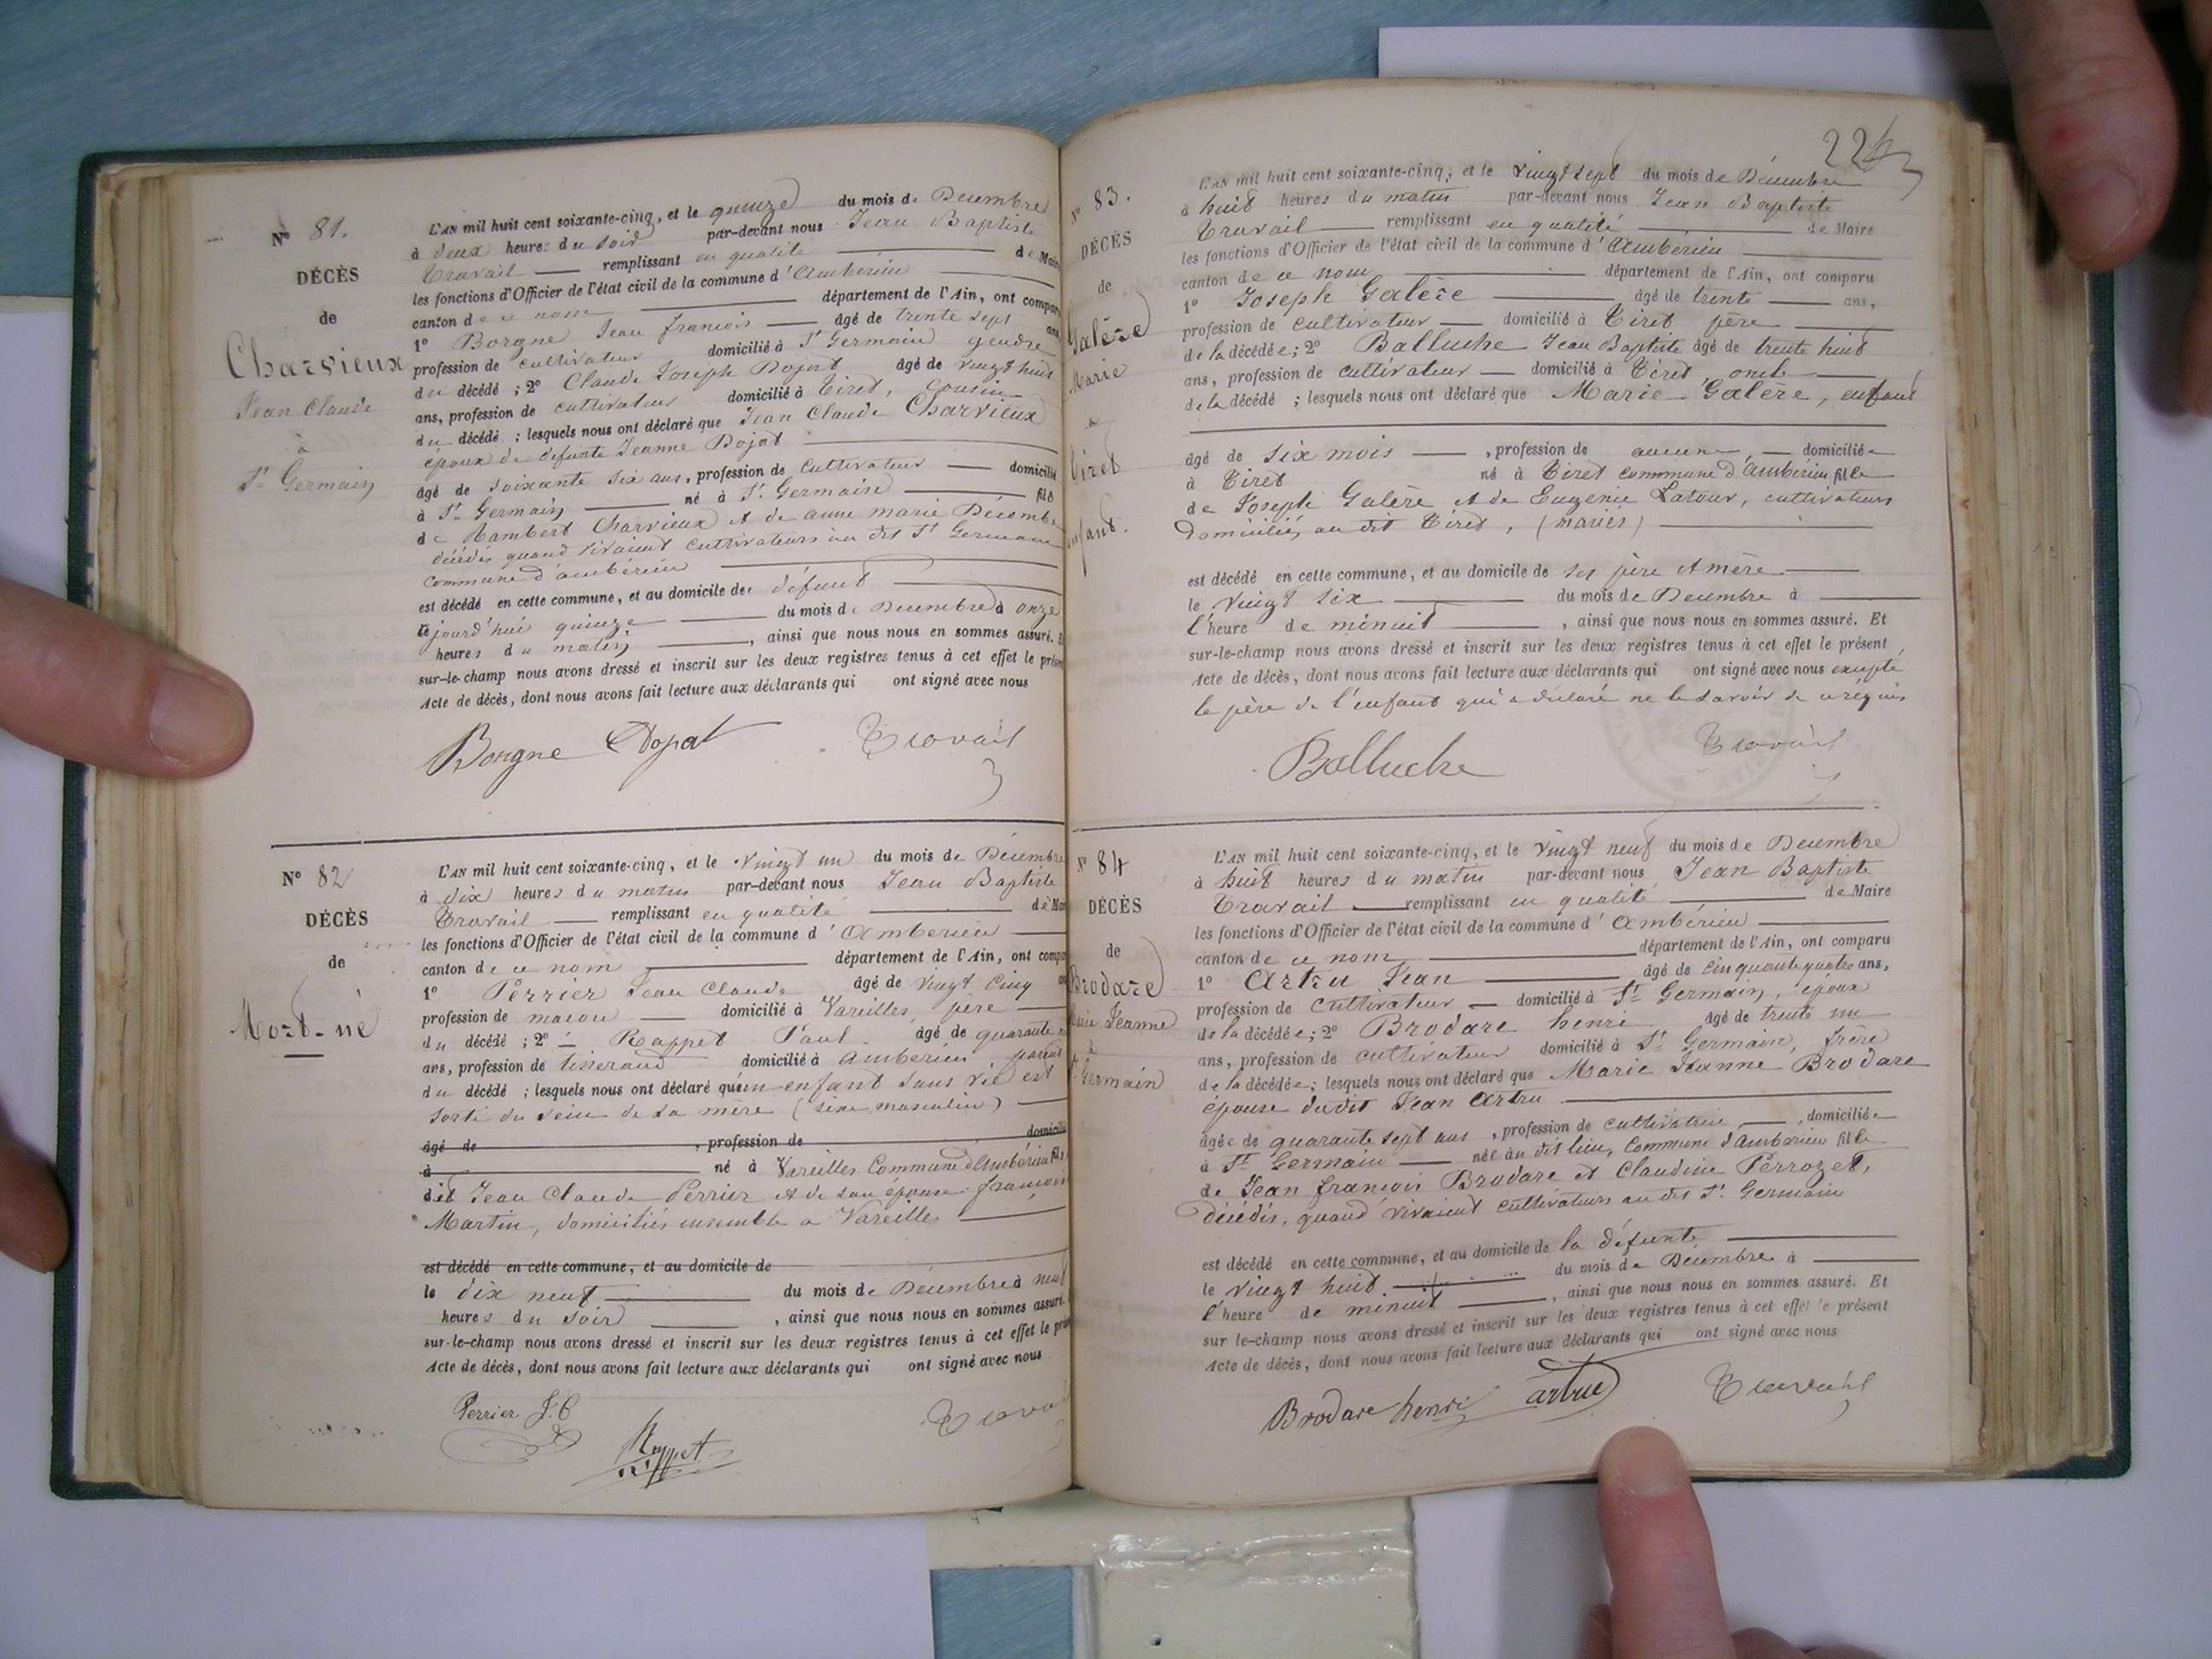 Nº 81.
DÉCÈS
de
Charvieux
Jean Claude
à
St Germain
L'AN mil huit cent soixante-cinq, et le quinze du mois de Décembre
à deux heures du soir par-devant nous Jean Baptiste
Travail remplissant en qualité de Mai
les fonctions d'Officier de l'état civil de la commune d'Ambérieu
canton de ce nom département de l'Ain, ont compar
1º Borgne Jean françois âgé de trente sept ans
profession de cultivateur domicilié à St Germain gendre
du décédé ; 2º Claude Joseph Dojat âgé de vingt huit
ans, profession de cultivateur domicilié à Tiret, cousin
du décédé ; lesquels nous ont déclaré que Jean Claude Charvieux
époux de defunte Jeanne Dojat
âgé de soixante six ans, profession de cultivateur domicilié
à St Germain né à St Germain fils
de Rambert Charvieux et de anne marie Décomb
décédés quand vivaient cultivateurs au dit St Germain
commune d'ambérieu
est décédé en cette commune, et au domicile de défunt
le jourd'hui quinze du mois de Décembre à onze
heures du matin, ainsi que nous nous en sommes assuré. E
sur-le-champ nous avons dressé et inscrit sur les deux registres tenus à cet effet le prése
Acte de décès, dont nous avons fait lecture aux déclarants qui ont signé avec nous
Borgne Dojat Travail
Nº 82
DÉCÈS
de
Mort-né
L'AN mil huit cent soixante-cinq, et le vingt un du mois de Décembre
à dix heures du matin par-devant nous Jean Baptiste
Travail remplissant en qualité de Mai
les fonctions d'Officier de l'état civil de la commune d'Ambérieu
canton de ce nom département de l'Ain, ont compa
1º Perrier Jean Claude âgé de vingt cinq an
profession de maçon domicilié à Vareilles, père
du décédé ; 2º Rappet Paul âgé de quarante
ans, profession de tisserand domicilié à Ambérieu, parent
du décédé ; lesquels nous ont déclaré qu'un enfant sans vie est
sorti du sein de sa mère (sexe masculin)
âgé de , profession de domicilié
à né à Vareilles Commune d'Ambérieu fils
dit Jean Claude Perrier et de son épouse françoise
Martin, domiciliés ensemble a Vareilles
est décédé en cette commune, et au domicile de
le dix neuf du mois de Décembre à neuf
heures du soir, ainsi que nous nous en sommes assuré.
sur-le-champ nous avons dressé et inscrit sur les deux registres tenus à cet effet le prés
Acte de décès, dont nous avons fait lecture aux déclarants qui ont signé avec nous
Perrier J.C Travai
Rappet
Nº 83.
DÉCÈS
de
Galère
Marie
à
Tiret
enfant.
L'AN mil huit cent soixante-cinq, et le vingt sept du mois de Décembre
à huit heures du matin par-devant nous Jean Baptiste
Travail remplissant en qualité de Maire
les fonctions d'Officier de l'état civil de la commune d'Ambérieu
canton de ce nom département de l'Ain, ont comparu
1º Joseph Galère âgé de trente ans,
profession de cultivateur domicilié à Tiret père
de la décédée ; 2º Balluche Jean Baptiste âgé de trente huit
ans, profession de cultivateur domicilié à Tiret oncle
de la décédé ; lesquels nous ont déclaré que Marie Galère, enfant
âgé de six mois, profession de aucune, domiciliée
à Tiret né à Tiret commune d'Ambérieu fille
de Joseph Galère et de Eugenie Latour, cultivateurs
domiciliés au dit Tiret, (mariés)
est décédé en cette commune, et au domicile de ses père et mère
le vingt six du mois de Décembre à
l'heure de minuit, ainsi que nous nous en sommes assuré. Et
sur-le-champ nous avons dressé et inscrit sur les deux registres tenus à cet effet le présent
Acte de décès, dont nous avons fait lecture aux déclarants qui ont signé avec nous excepté
le père de l'enfant qui a déclaré ne le savoir de ce réquis
Balluche Travail
Nº 84
DÉCÈS
de
Brodare
Marie Jeanne
à
St Germain
L'AN mil huit cent soixante-cinq, et le vingt neuf du mois de Décembre
à huit heures du matin par-devant nous Jean Baptiste
Travail remplissant en qualité de Maire
les fonctions d'Officier de l'état civil de la commune d'Ambérieu
canton de ce nom département de l'Ain, ont comparu
1º Artru Jean âgé de cinquante quatre ans,
profession de cultivateur domicilié à St Germain, époux
de la décédée ; 2º Brodare henri âgé de trente un
ans, profession de cultivateur domicilié à St Germain, frère
de la décédée ; lesquels nous ont déclaré que Marie Jeanne Brodare
épouse dudit Jean Artru
âgée de quarante sept ans, profession de cultivatrice, domiciliée
à St Germain née au dit lieu, Commune d'Ambérieu fille
de Jean françois Brodare et Claudine Perrozet,
décédés, quand vivaient cultivateurs au dit St Germain
est décédé en cette commune, et au domicile de la défunte
le vingt huit du mois de Décembre à
l'heure de minuit, ainsi que nous nous en sommes assuré. Et
sur le-champ nous avons dressé et inscrit sur les deux registres tenus à cet effet le présent
Acte de décès, dont nous avons fait lecture aux déclarants qui ont signé avec nous
Brodare henri artru Travail